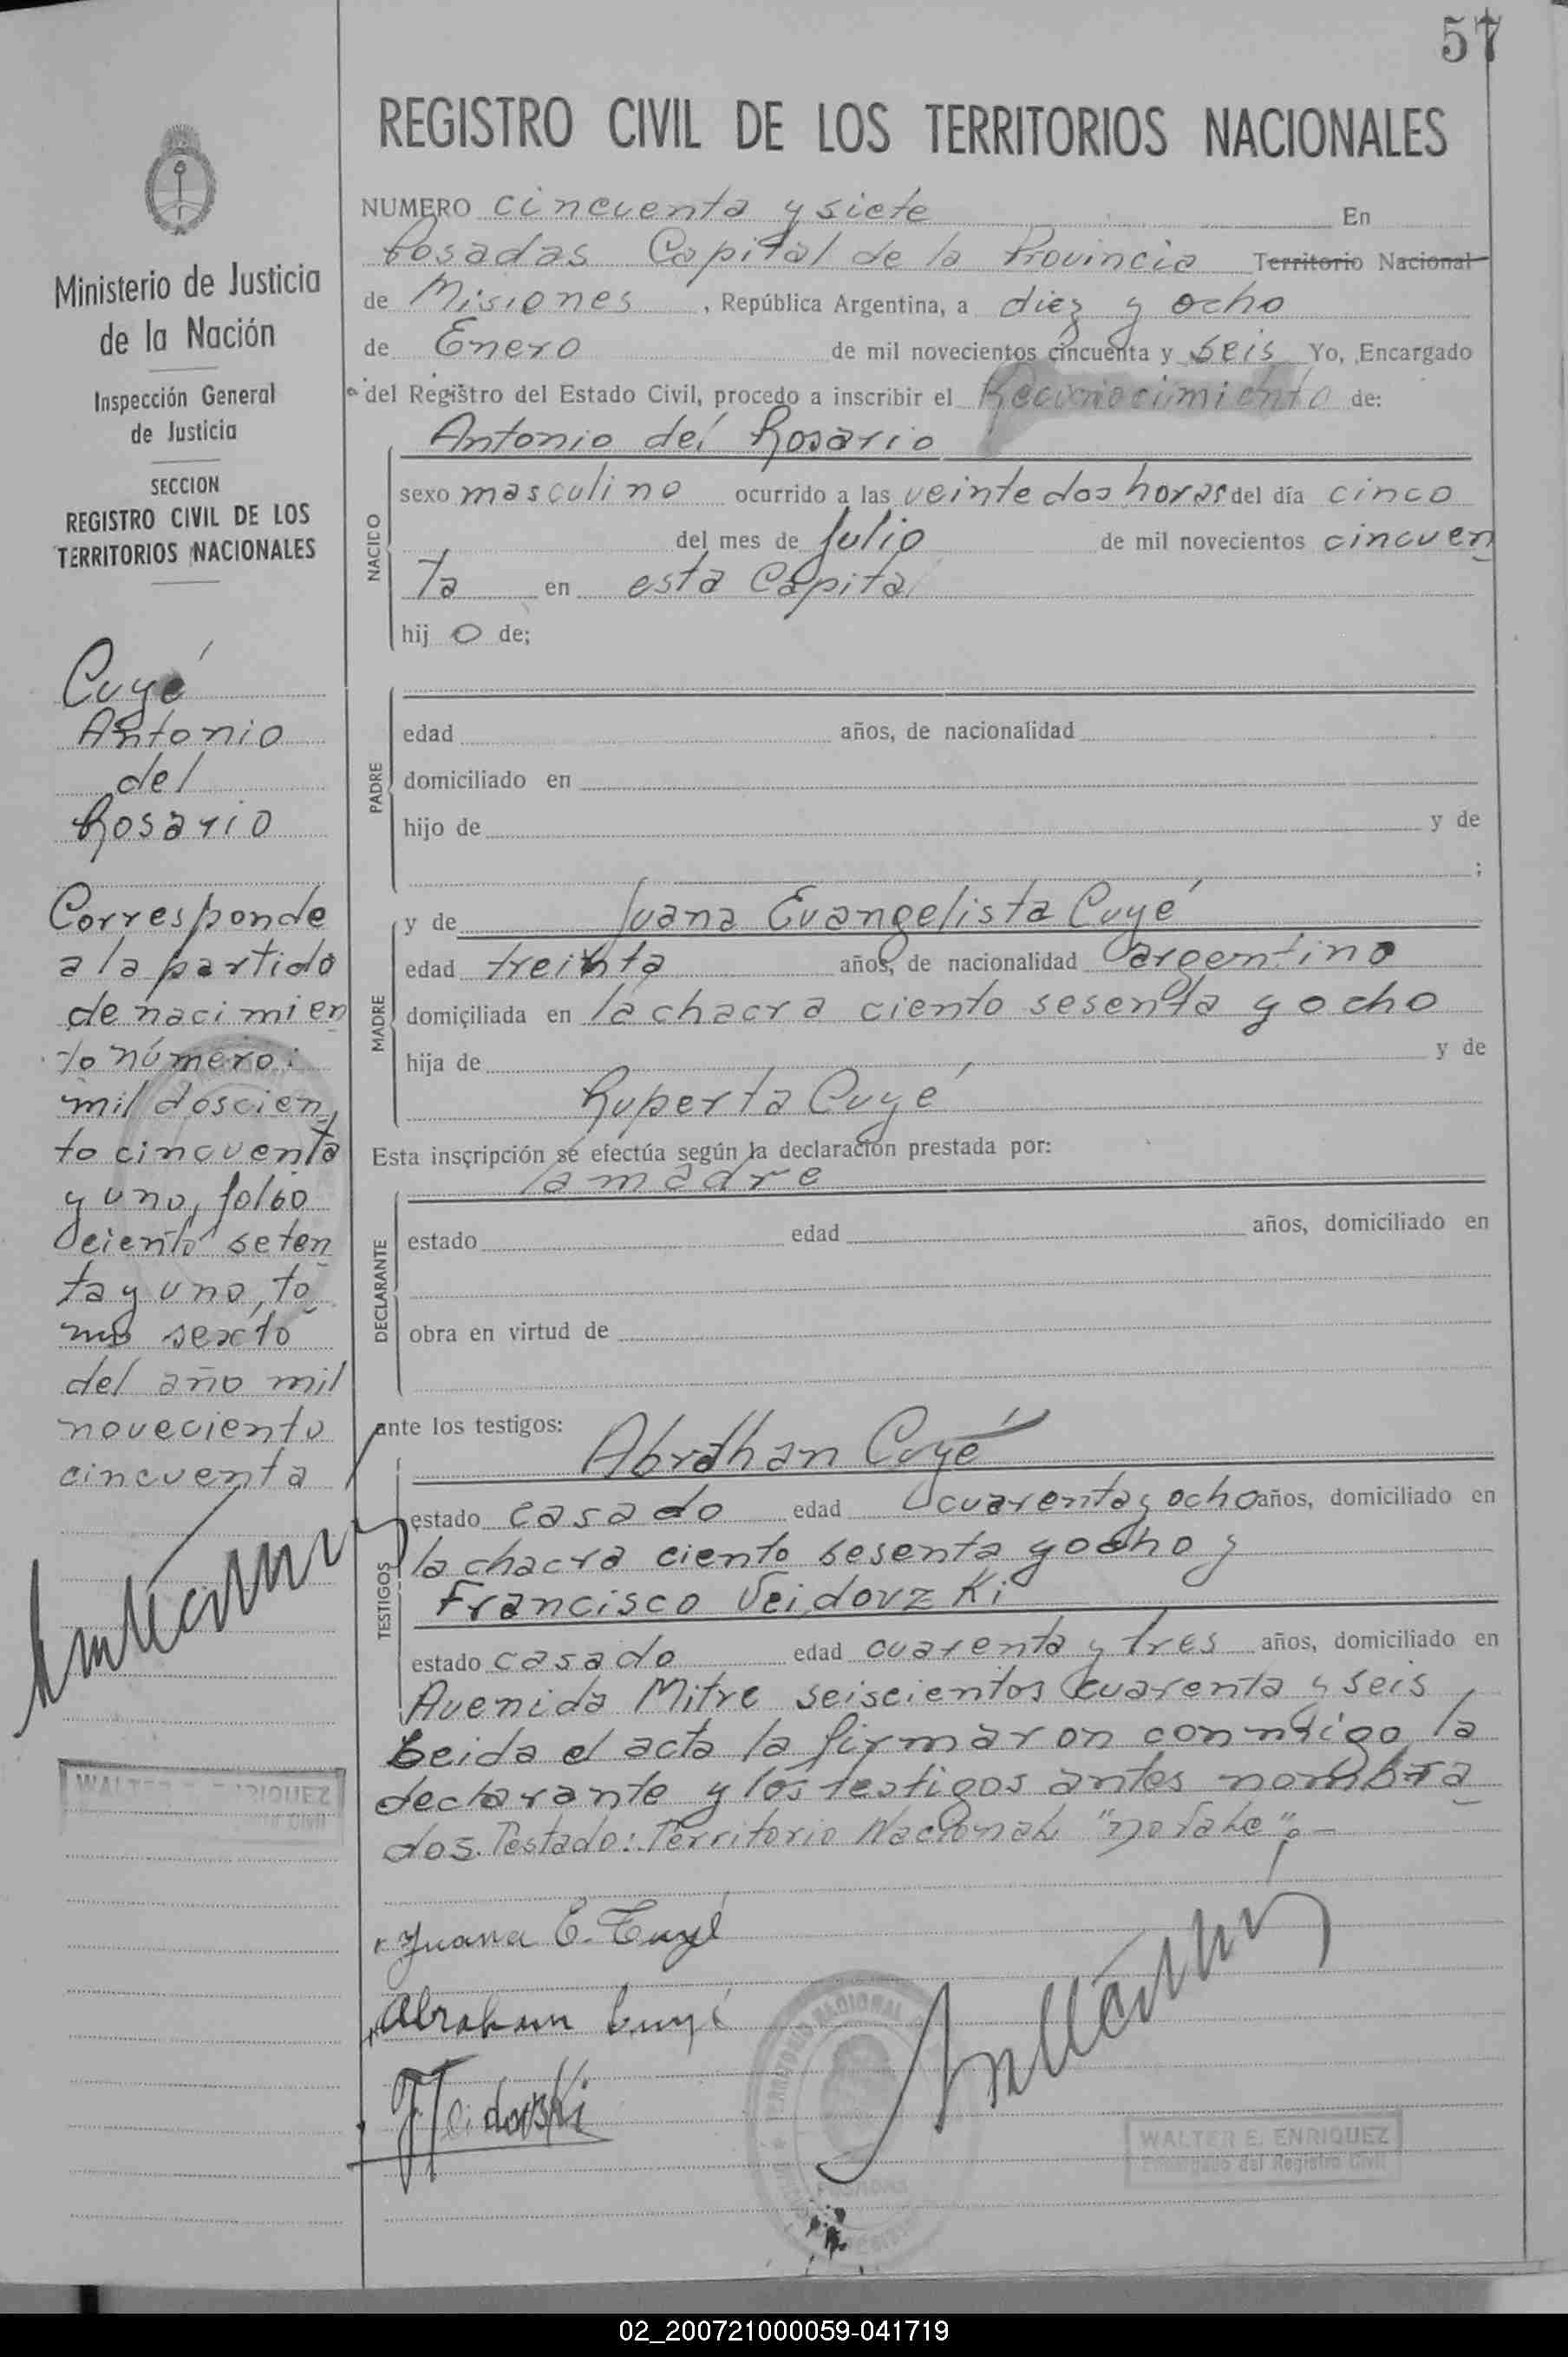 57
REGISTRO CIVIL DE LOS TERRITORIOS NACIONALES
Ministerio de Justicia
de la Nación
Inspección General
de Justicia
SECCION
REGISTRO CIVIL DE LOS
TERRITORIOS NACIONALES
Cuyé
Antonio
del
Rosario
Corresponde
a la partida
de nacimien
to número:
mil doscien
to cincuenta
y uno, folio
ciento seten
ta y uno, to
mo sexto
del año mil
noveciento
cincuenta
WALTER E. ENRIQUEZ
NUMERO cincuenta y siete En
Posadas Capital de la Provincia Territorio Nacional
de Misiones, República Argentina, a diez y ocho
de Enero de mil novecientos cincuenta y seis Yo, Encargado
del Registro del Estado Civil, procedo a inscribir el Reconocimiento de:
Antonio del Rosario
NACIDO
sexo masculino ocurrido a las veinte dos horas del día cinco
del mes de Julio de mil novecientos cincuen
ta en esta Capital
hij o de;
PADRE
edad años, de nacionalidad
domiciliado en
hijo de y de
;
MADRE
y de Juana Evangelista Cuyé
edad treinta años, de nacionalidad argentino
domiciliada en la chacra ciento sesenta y ocho
hija de y de
Ruperta Cuyé
Esta inscripción se efectúa según la declaración prestada por:
la madre
DECLARANTE
estado edad años, domiciliado en
obra en virtud de
ante los testigos:
Abrahan Cuyé
TESTIGOS
estado casado edad cuarenta y ocho años, domiciliado en
la chacra ciento sesenta y ocho y
Francisco Veidovzki
estado casado edad cuarenta y tres años, domiciliado en
Avenida Mitre seiscientos cuarenta y seis
Leida el acta la firmaron conmigo la
declarante y los testigos antes nombra
dos. Testado: Territorio Nacional "no vale".-
Juana E. Cuyé
Abraham Cuyé
WALTER E. ENRIQUEZ
Encargado del Registro Civil
02_200721000059-041719